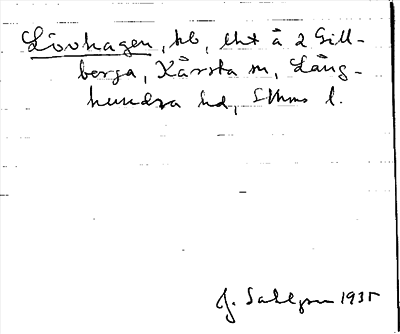 Lövhagen, hb, lht å 2 Gill-
berga, Kårsta sn, Lång-
hundra hd, Sthms l.
J. Sahlgren 1935